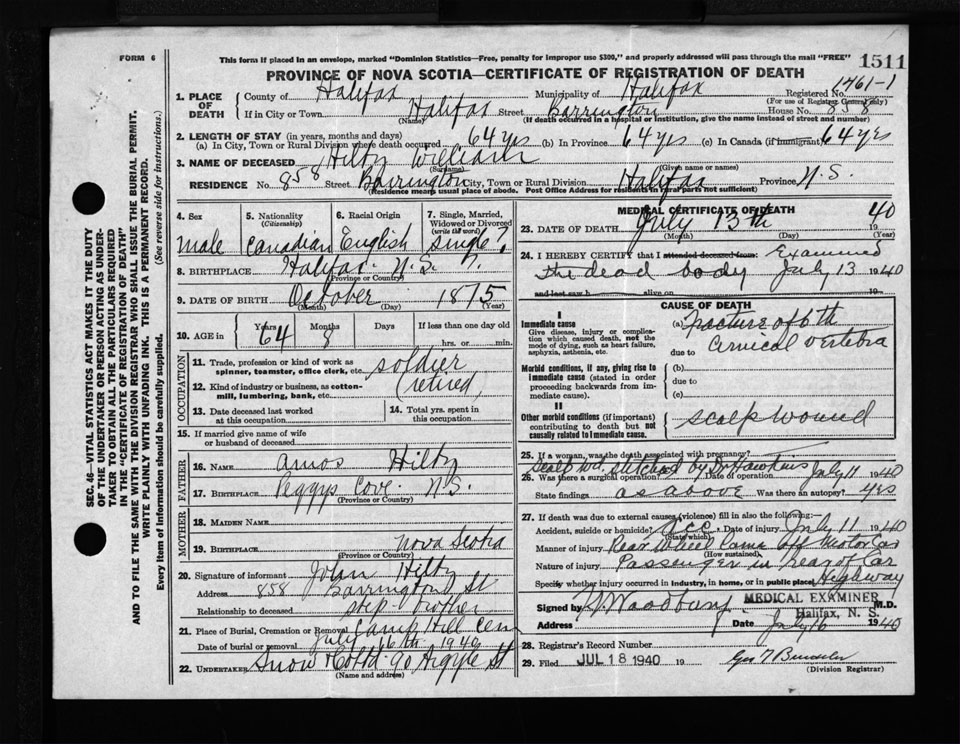 FORM 6
This form if placed in an envelope, marked "Dominion Statistics—Free, penalty for improper use $300," and properly addressed will pass through the mail "FREE"
1511
PROVINCE OF NOVA SCOTIA—CERTIFICATE OF REGISTRATION OF DEATH
1761-1
1. PLACE OF DEATH
County of Halifax Municipality of Halifax Registered No.
(For use of Registrar General only)
If in City or Town Halifax Street Barrington House No. 858
(Name) (If death occurred in a hospital or institution, give the name instead of street and number)
2. LENGTH OF STAY (in years, months and days)
(a) In City, Town or Rural Division where death occurred 64 yrs (b) In Province 64 yrs (c) In Canada (if immigrant) 64 yrs
3. NAME OF DECEASED Hilty William
(Surname) (Given name or names)
RESIDENCE No. 858 Street Barrington City, Town or Rural Division Halifax Province N.S.
(Residence means usual place of abode. Post Office Address for residents in rural parts not sufficient)
4. Sex
male
5. Nationality (Citizenship)
Canadian
6. Racial Origin
English
7. Single, Married, Widowed or Divorced (write the word)
single ?
8. BIRTHPLACE Halifax N.S.
(Province or Country)
9. DATE OF BIRTH October 1875
(Month) (Day) (Year)
10. AGE in Years 64 Months 8 Days If less than one day old
hrs. or min.
OCCUPATION
11. Trade, profession or kind of work as spinner, teamster, office clerk, etc. soldier
12. Kind of industry or business, as cotton-mill, lumbering, bank, etc. (retired)
13. Date deceased last worked at this occupation
14. Total yrs. spent in this occupation
15. If married give name of wife or husband of deceased
FATHER
16. NAME Amos Hilty
17. BIRTHPLACE Peggys Cove N.S.
(Province or Country)
MOTHER
18. MAIDEN NAME
19. BIRTHPLACE Nova Scotia
(Province or Country)
20. Signature of informant John Hilty
Address 858 Barrington St
Relationship to deceased step brother
21. Place of Burial, Cremation or Removal Camp Hill Cem
Date of burial or removal July 16th 1940
22. UNDERTAKER Snow & Co Ltd 90 Argyle St
(Name and address)
MEDICAL CERTIFICATE OF DEATH
23. DATE OF DEATH July 13th 40
(Month) (Day) (Year)
24. I HEREBY CERTIFY that I attended deceased from: Examined
the dead body July 13 1940
and last saw h alive on 19
CAUSE OF DEATH
I
Immediate cause
Give disease, injury or complication which caused death, not the mode of dying, such as heart failure, asphyxia, asthenia, etc.
(a) Fracture of 6th
due to cervical vertebra
Morbid conditions, if any, giving rise to immediate cause (stated in order proceeding backwards from immediate cause).
(b)
due to
(c)
II
Other morbid conditions (if important) contributing to death but not causally related to immediate cause.
scalp wound
25. If a woman, was the death associated with pregnancy?
scalp wd. stitched by Dr Hawkins July 11 1940
26. Was there a surgical operation? Date of operation
State findings as above Was there an autopsy? yes
27. If death was due to external causes (violence) fill in also the following:
Accident, suicide or homicide? acc Date of injury July 11 1940
(State which)
Manner of injury Rear Wheel Came off Motor Car
(How sustained)
Nature of injury Passenger in rear of Car
Specify whether injury occurred in industry, in home, or in public place Highway
Signed by Woodbury MEDICAL EXAMINER M.D.
Halifax, N. S.
Address Date July 16 1940
28. Registrar's Record Number
29. Filed JUL 18 1940 19
(Division Registrar)
SEC. 46—VITAL STATISTICS ACT MAKES IT THE DUTY
OF THE UNDERTAKER OR PERSON ACTING AS UNDER-
TAKER TO OBTAIN ALL THE PARTICULARS REQUIRED
IN THE "CERTIFICATE OF REGISTRATION OF DEATH"
AND TO FILE THE SAME WITH THE DIVISION REGISTRAR WHO SHALL ISSUE THE BURIAL PERMIT.
WRITE PLAINLY WITH UNFADING INK. THIS IS A PERMANENT RECORD.
Every item of information should be carefully supplied. (See reverse side for instructions.)